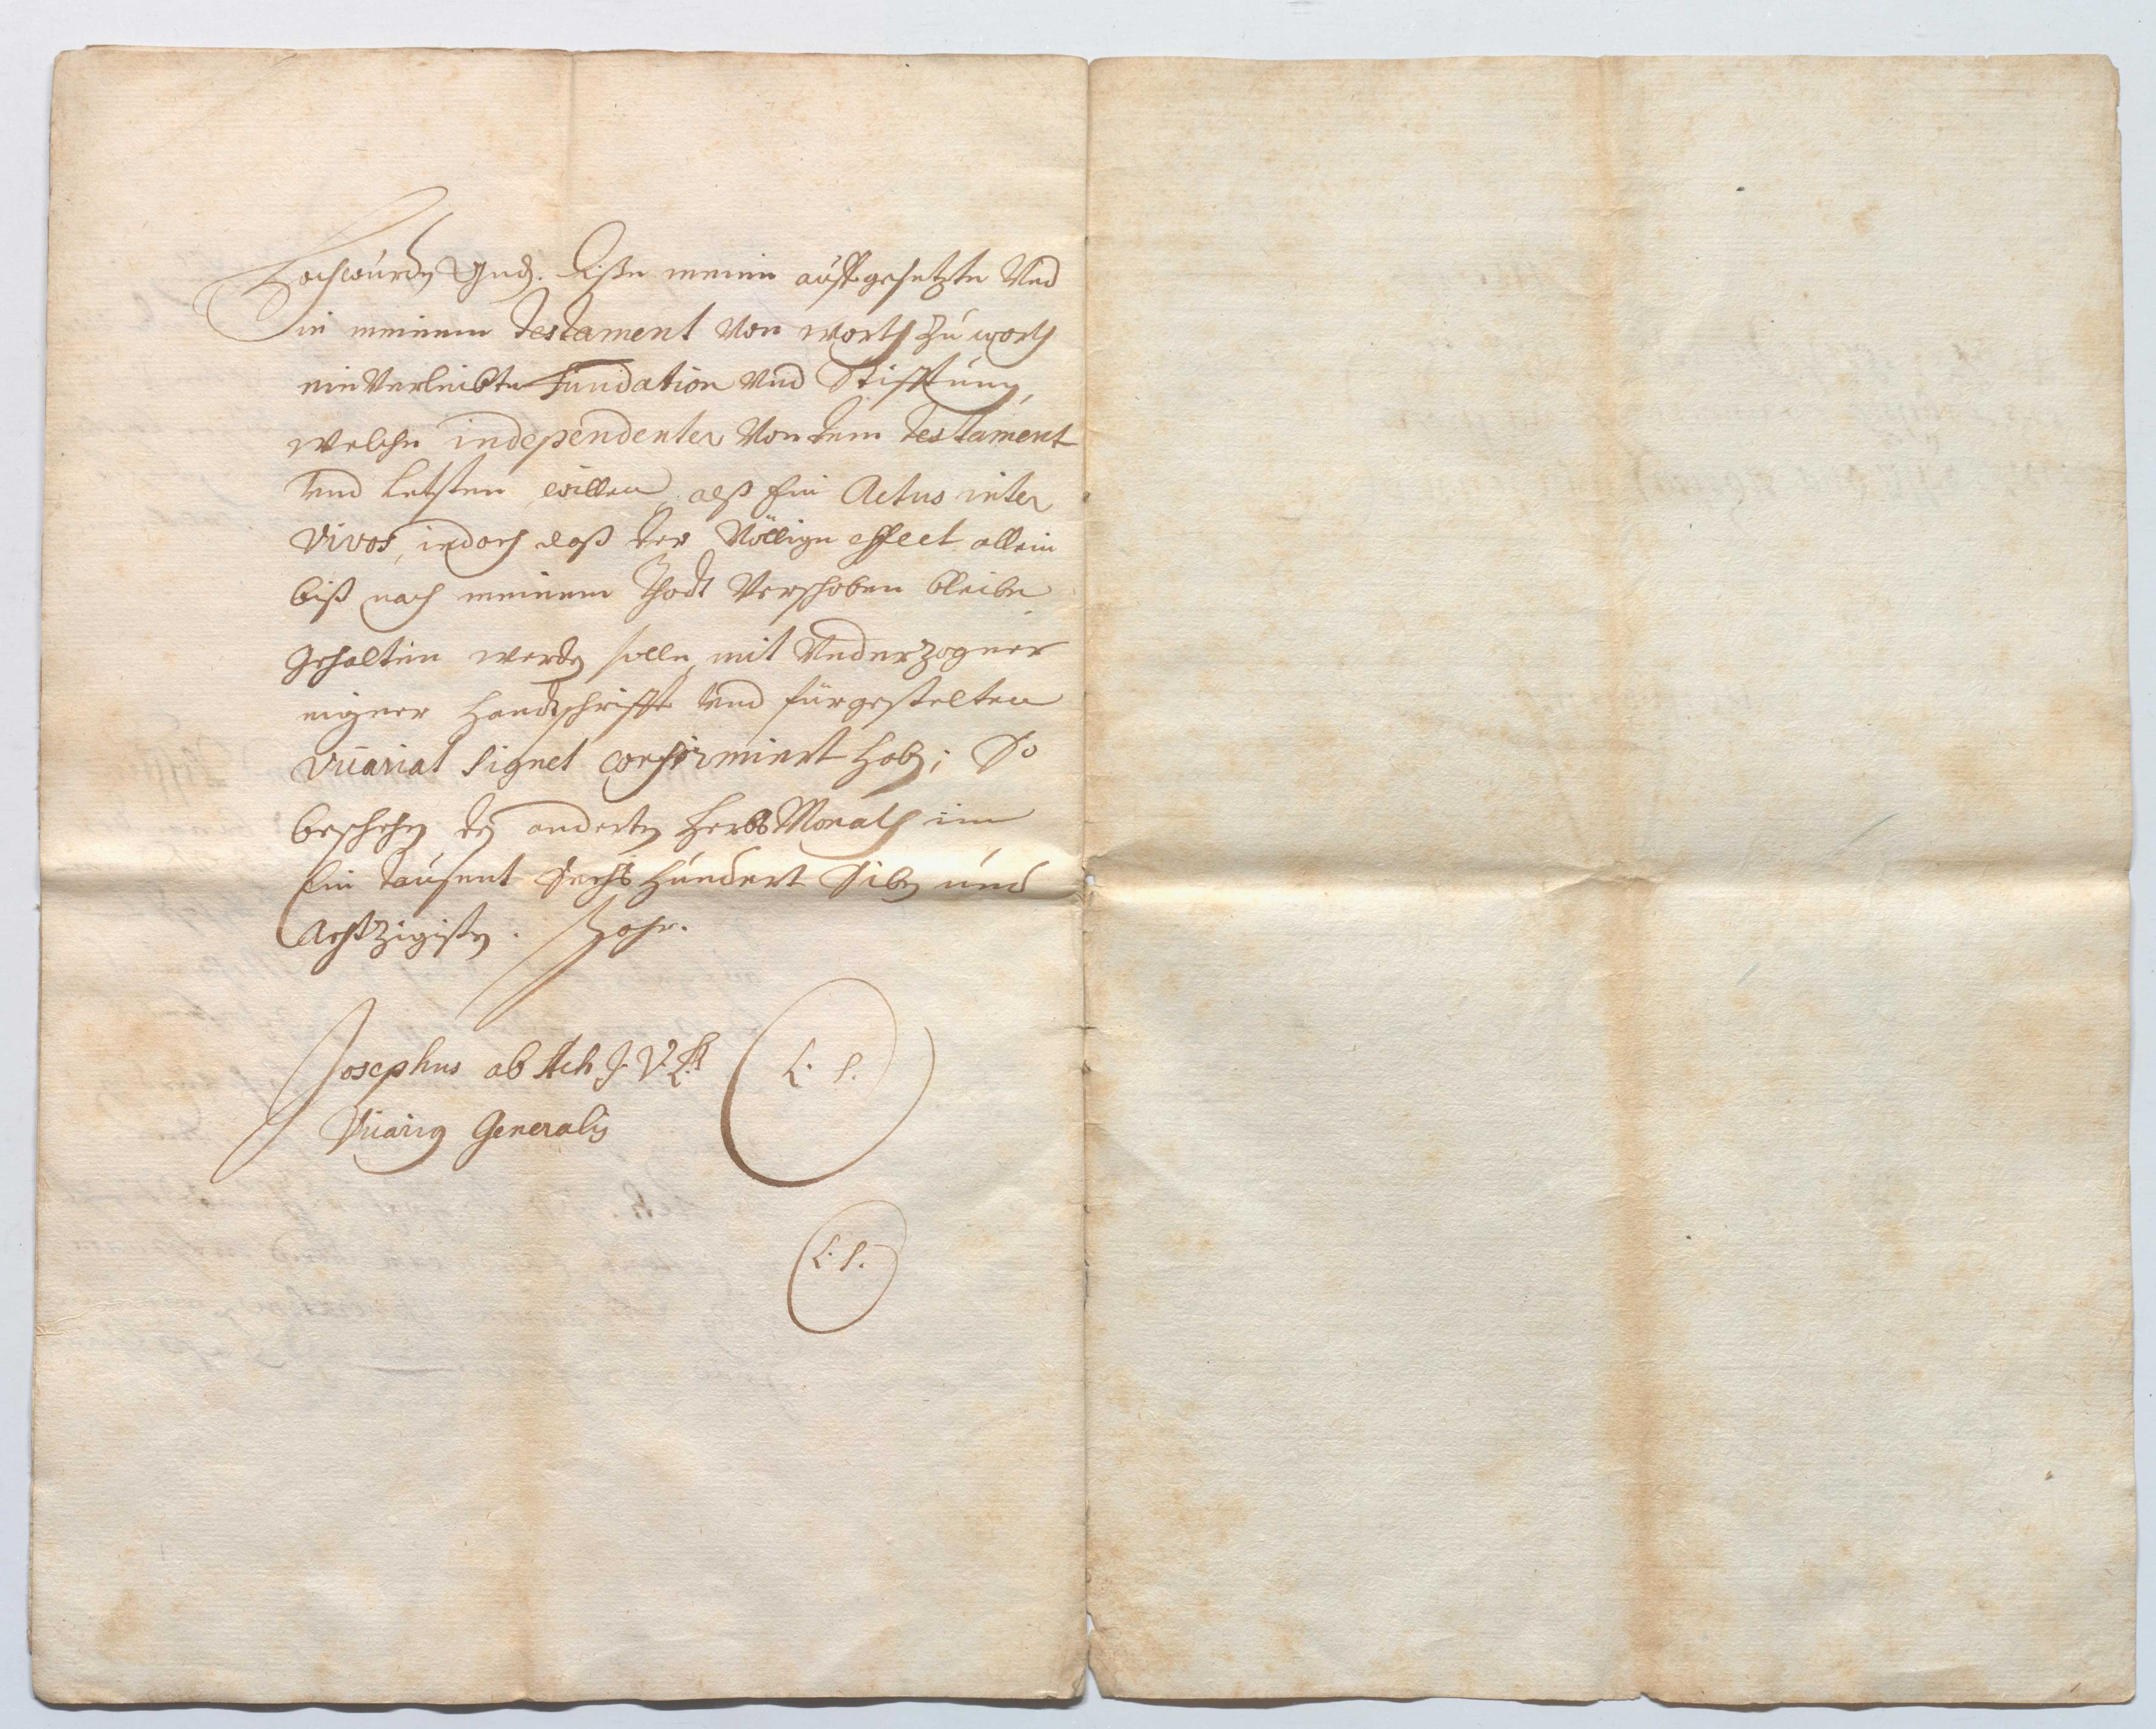 Hochwürdn Gnd. dißen meine auffgesetzte Vnd
in meinem Testament Von worth zu worth
ein Verleibte Fundation Vnd Stifftung,
welche independenter Von dem Testament
Vnd Letsten willen alß Ein Actus inter
Vivos, iedoch daß der Völlige effect allein
biß nach meinem Thodt Verschoben bleibe
gehalten werdn solle, mit Vnderzogner
eigner Handtschrifft Vnd fürgestelten
Vicariat Signet confirmiert habn; So
beschehn dn andertn HerbstMonath im
Ein Tausent Sechs Hundert Sibn und
Achtzigistn. Jahr.
Josephus ab Ach J. V. L.
Vicariq Generalis
L. S.
L. S.